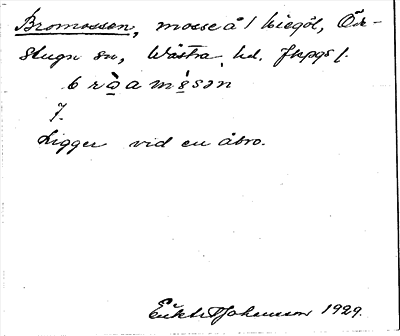 Bromossen, mosse å 1 Kiegöl, Ör-
Slugn sn, Wästra hd. Jkpgs l.
bròamósən
J.
Ligger vid en åbro.
Johansson 1929.